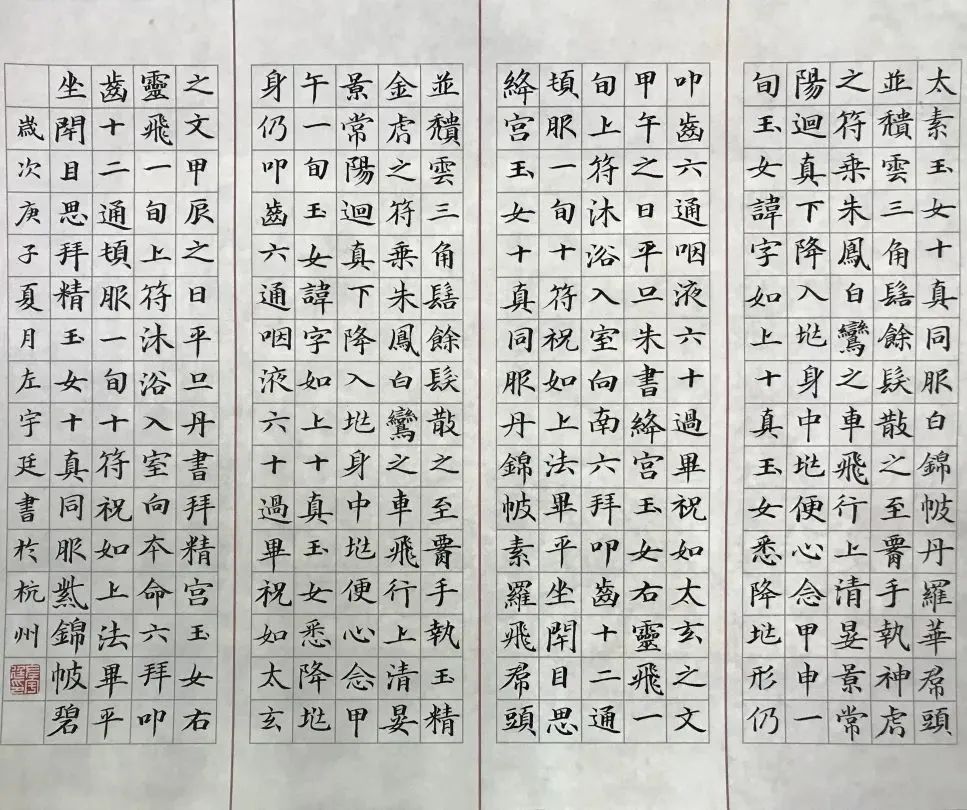 太素玉女十真同服白錦帔丹羅華帬頭
並穨雲三角髻餘髮散之至腰手執神虎
之符乘朱鳳白鸞之車飛行上清晏景常
陽迴真下降入兆身中兆便心念甲申一
旬玉女諱字如上十真玉女悉降兆形仍
叩齒六通咽液六十過畢祝如太玄之文
甲午之日平旦朱書絳宮玉女右靈飛一
旬上符沐浴入室向南六拜叩齒十二通
頓服一旬十符祝如上法畢平坐閉目思
絳宮玉女十真同服丹錦帔素羅飛帬頭
並穨雲三角髻餘髮散之至腰手執玉精
金虎之符乘朱鳳白鸞之車飛行上清晏
景常陽迴真下降入兆身中兆便心念甲
午一旬玉女諱字如上十真玉女悉降兆
身仍叩齒六通咽液六十過畢祝如太玄
之文甲辰之日平旦丹書拜精宮玉女右
靈飛一旬上符沐浴入室向本命六拜叩
齒十二通頓服一旬十符祝如上法畢平
坐閉目思拜精玉女十真同服紫錦帔碧
歲次庚子夏月左宇廷書於杭州